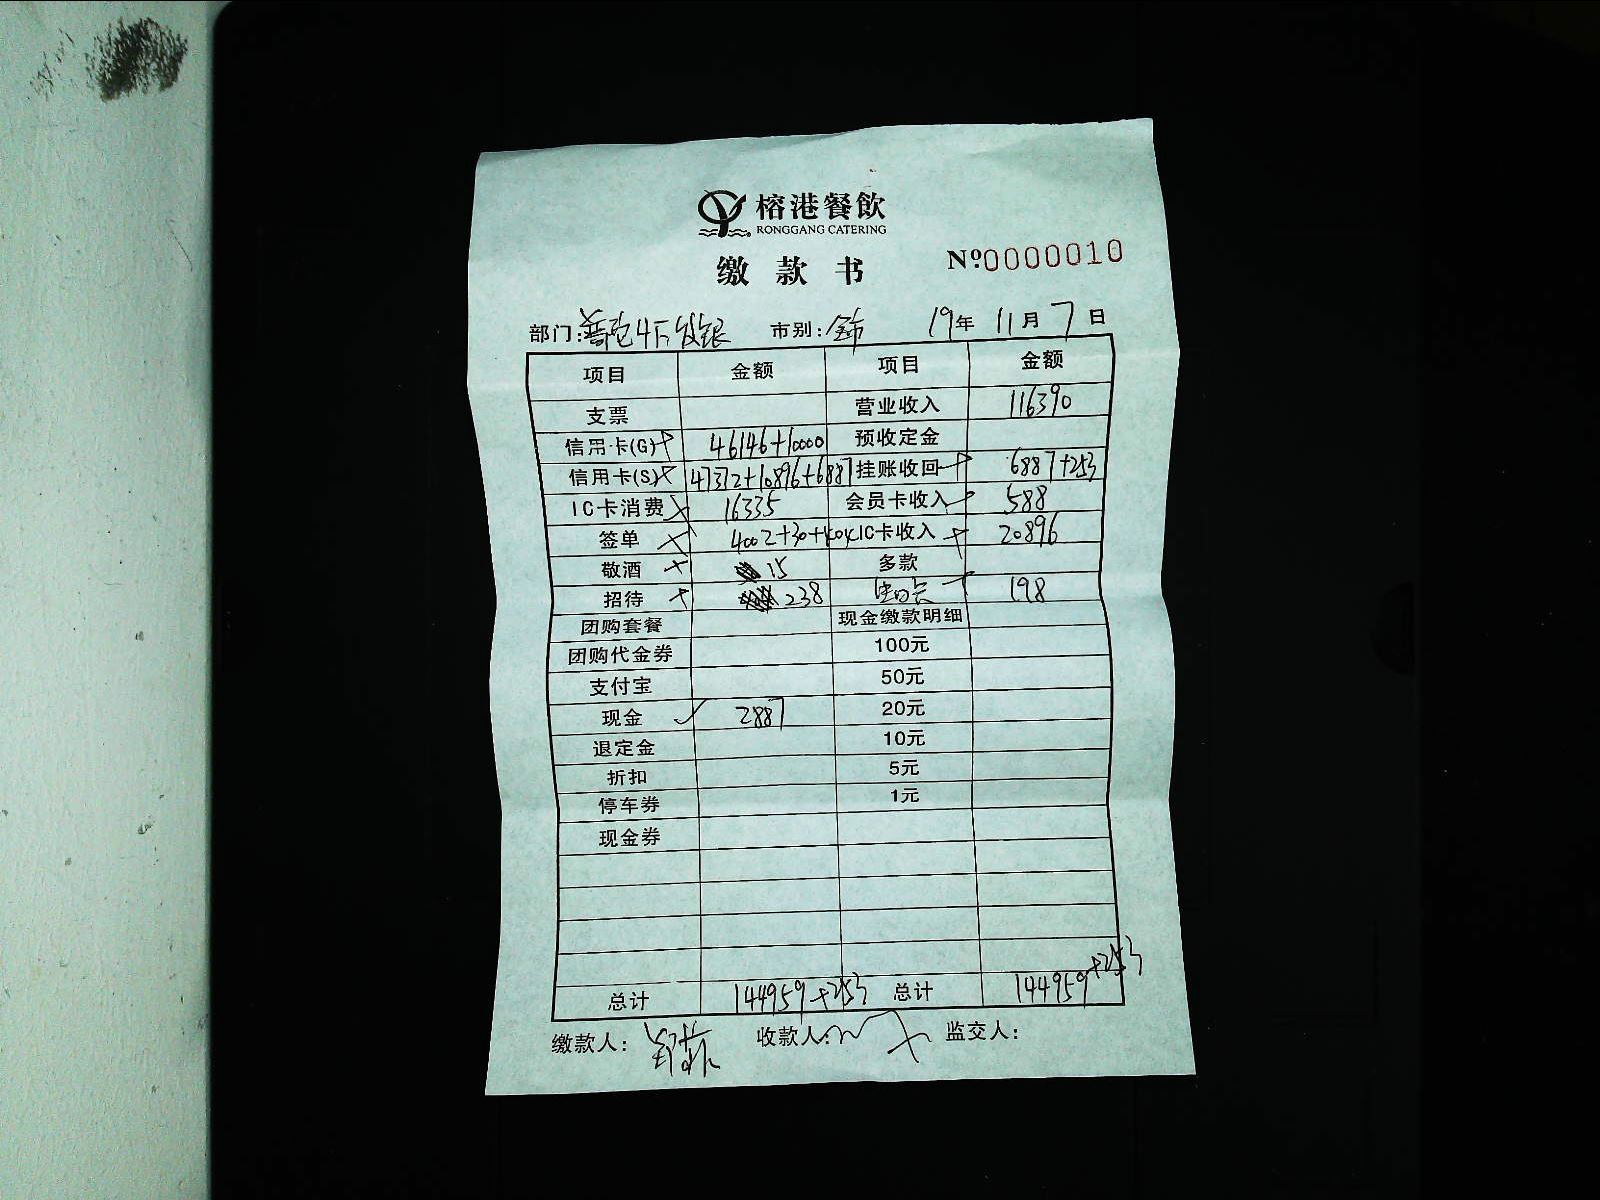 榕港餐飲
RONGGANG CATERING
缴款书
Nº0000010
部门: 市别: 19年 11月 7日
项目 金额 项目 金额
支票 营业收入 116390
信用卡(G) 46146+10000 预收定金
信用卡(S) 47372+10896+6887 挂账收回 6887+253
IC卡消费 16335 会员卡收入 588
签单 4002+30+ IC卡收入 20896
敬酒 15 多款
招待 238 198
团购套餐 现金缴款明细
团购代金券 100元
支付宝 50元
现金 2887 20元
退定金 10元
折扣 5元
停车券 1元
现金券
总计 144959+253 总计 144959+253
缴款人: 收款人: 监交人: